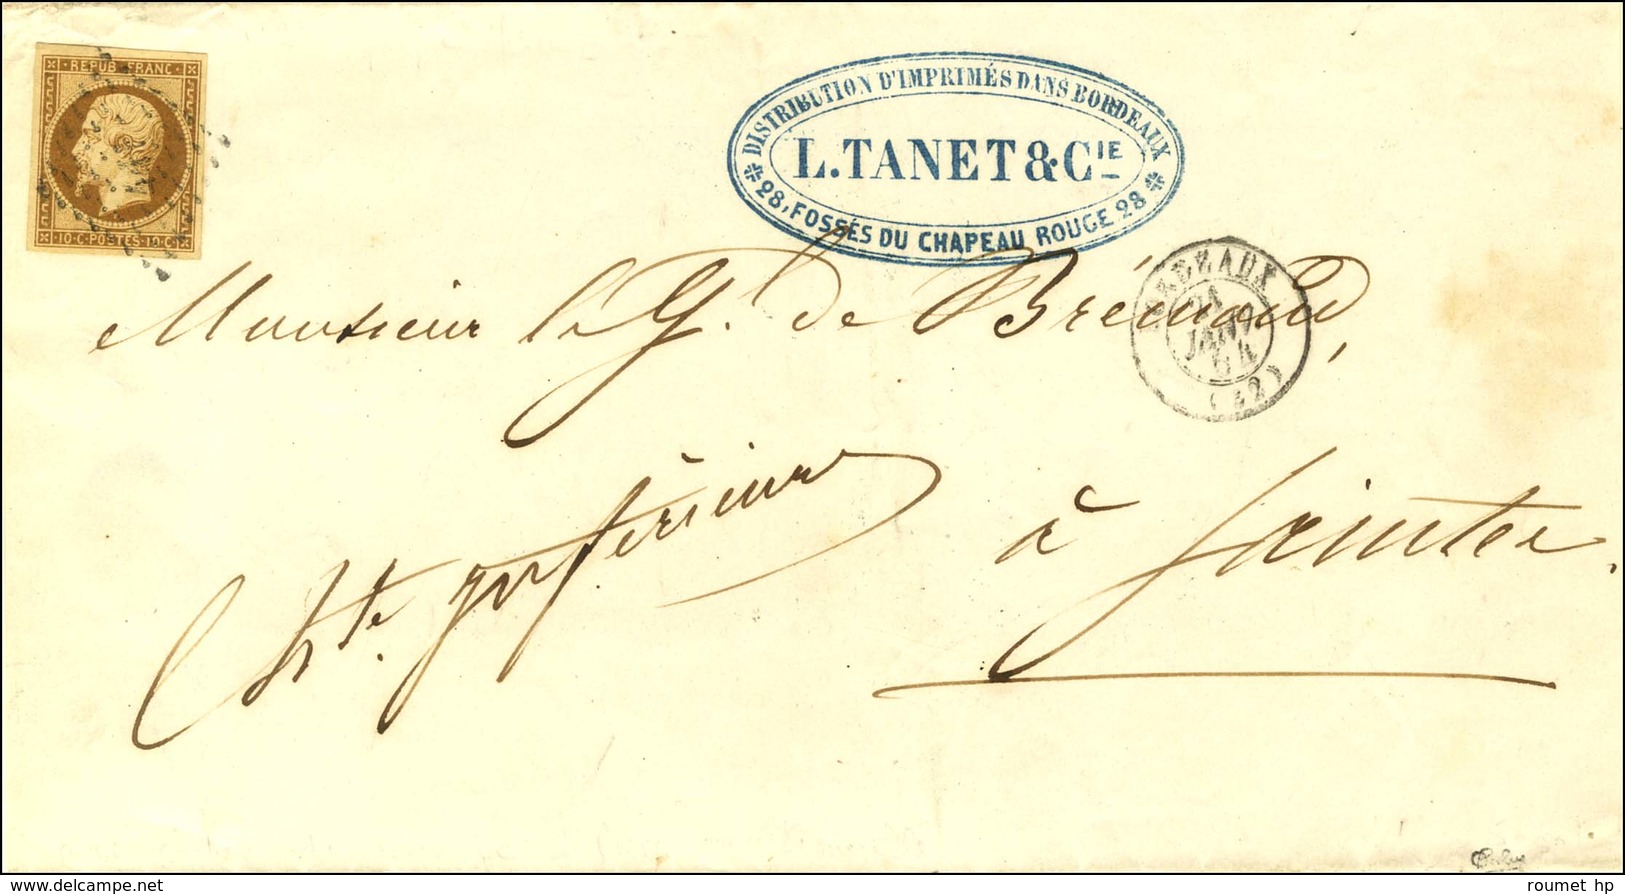 REPUB. FRANC.
10 · C · POSTES · 10 · C
DISTRIBUTION D'IMPRIMÉS DANS BORDEAUX
L. TANET & CIE
28, FOSSÉS DU CHAPEAU ROUGE 28
BORDEAUX
21
JANV
54
(32)
Monsieur le G. de Brémond,
Chte Inférieure
à Sainte
delcampe.net
roumet hp